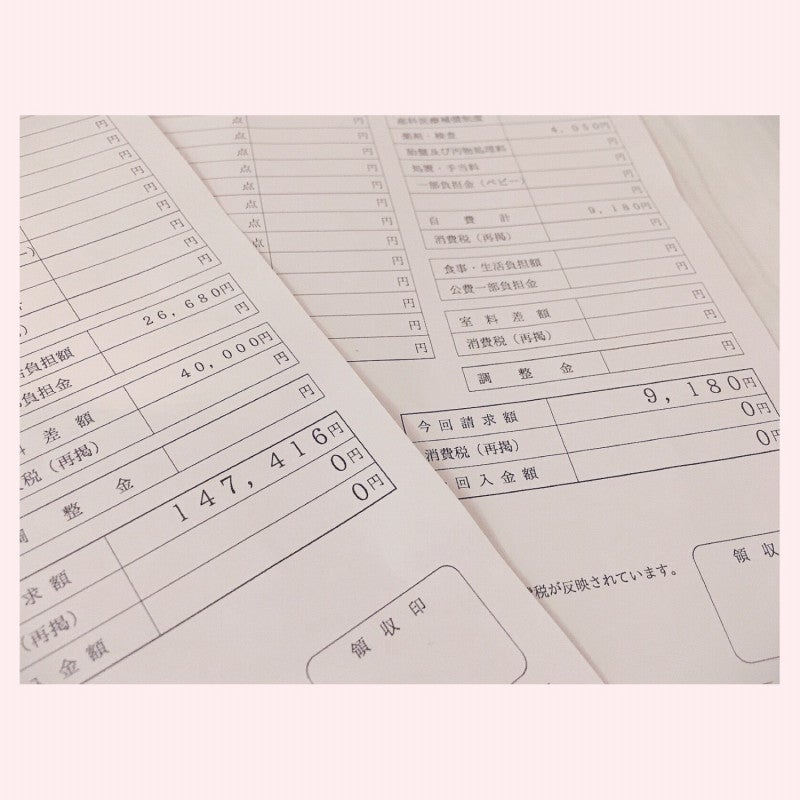 円
円
円
円
円
円
円
円
26,680円
負担額
円
負担金
40,000円
差額
円
税(再掲)
円
調整金
147,416円
求額
0円
(再掲)
0円
金額
領収印
点 円
点 円
点 円
点 円
点 円
点 円
点 円
点 円
点 円
円
円
円
円
円
産科医療補償制度 円
薬剤・検査 4,050円
胎盤及び汚物処理料 円
処置・手当料 円
一部負担金(ベビー) 円
円
自費計 9,180円
消費税(再掲) 円
食事・生活負担額 円
公費一部負担金 円
室料差額 円
消費税(再掲) 円
調整金 円
今回請求額 9,180円
消費税(再掲) 0円
回入金額 0円
税が反映されています。
領収